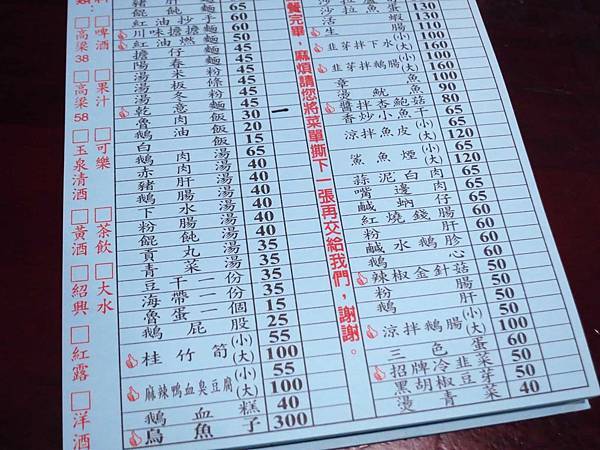 啤酒
果汁
可樂
茶飲
大水
高粱38
高粱58
玉泉清酒
黃酒
紹興
紅露
洋酒
餛飩麵 65
紅油抄手 60
川味擔擔麵 45
紅油燃麵 50
擔仔麵 45
陽春麵 45
湯米粉 45
湯板條 45
魯肉飯 30
鵝油飯 20
白飯 15
鵝肉湯 65
赤肉湯 40
豬肝湯 40
下水湯 40
粉腸湯 40
餛飩湯 40
貢丸湯 35
青菜湯 35
豆干一份 35
海帶一份 35
魯蛋一個 15
鵝屁股 25
桂竹筍 (小) 55
(大) 100
麻辣鴨血臭豆腐 (小) 55
(大) 100
鵝血糕 40
烏魚子 300
餐完畢，麻煩請您將菜單撕下一張再交給我們，謝謝。
活蝦 130
韭芽拌下水 (小)
(大) 160
韭芽拌鵝腸 (小)
(大) 160
章魚 100
燙魷魚 90
醬拌杏鮑菇 80
香炒小魚干 65
涼拌魚皮 (小) 65
(大) 120
鯊魚煙 (小) 65
(大) 120
蒜泥白肉 65
嘴邊肉 65
鹹蚋仔 65
紅燒錢腸 60
粉肝 60
鹹水鵝胗 60
鵝心 60
辣椒金針菇 50
粉腸 50
鵝肝 50
涼拌鵝腸 (小) 50
(大) 100
三色蛋 60
招牌冷韭菜 50
黑胡椒豆芽 50
燙青菜 40